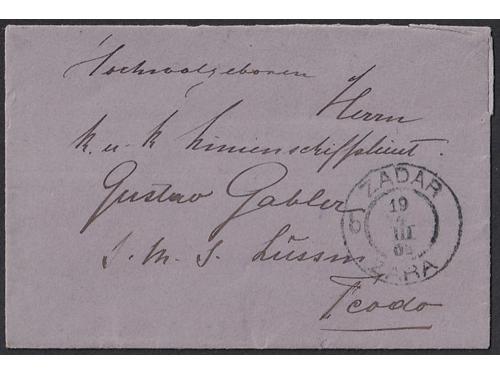 Hochwolgeboren
Herrn
k. u. k Linienschiffslieut.
Gustav Gabler
S. M. S. Lussin
Teodo
ZADAR
19
III
6
ZARA